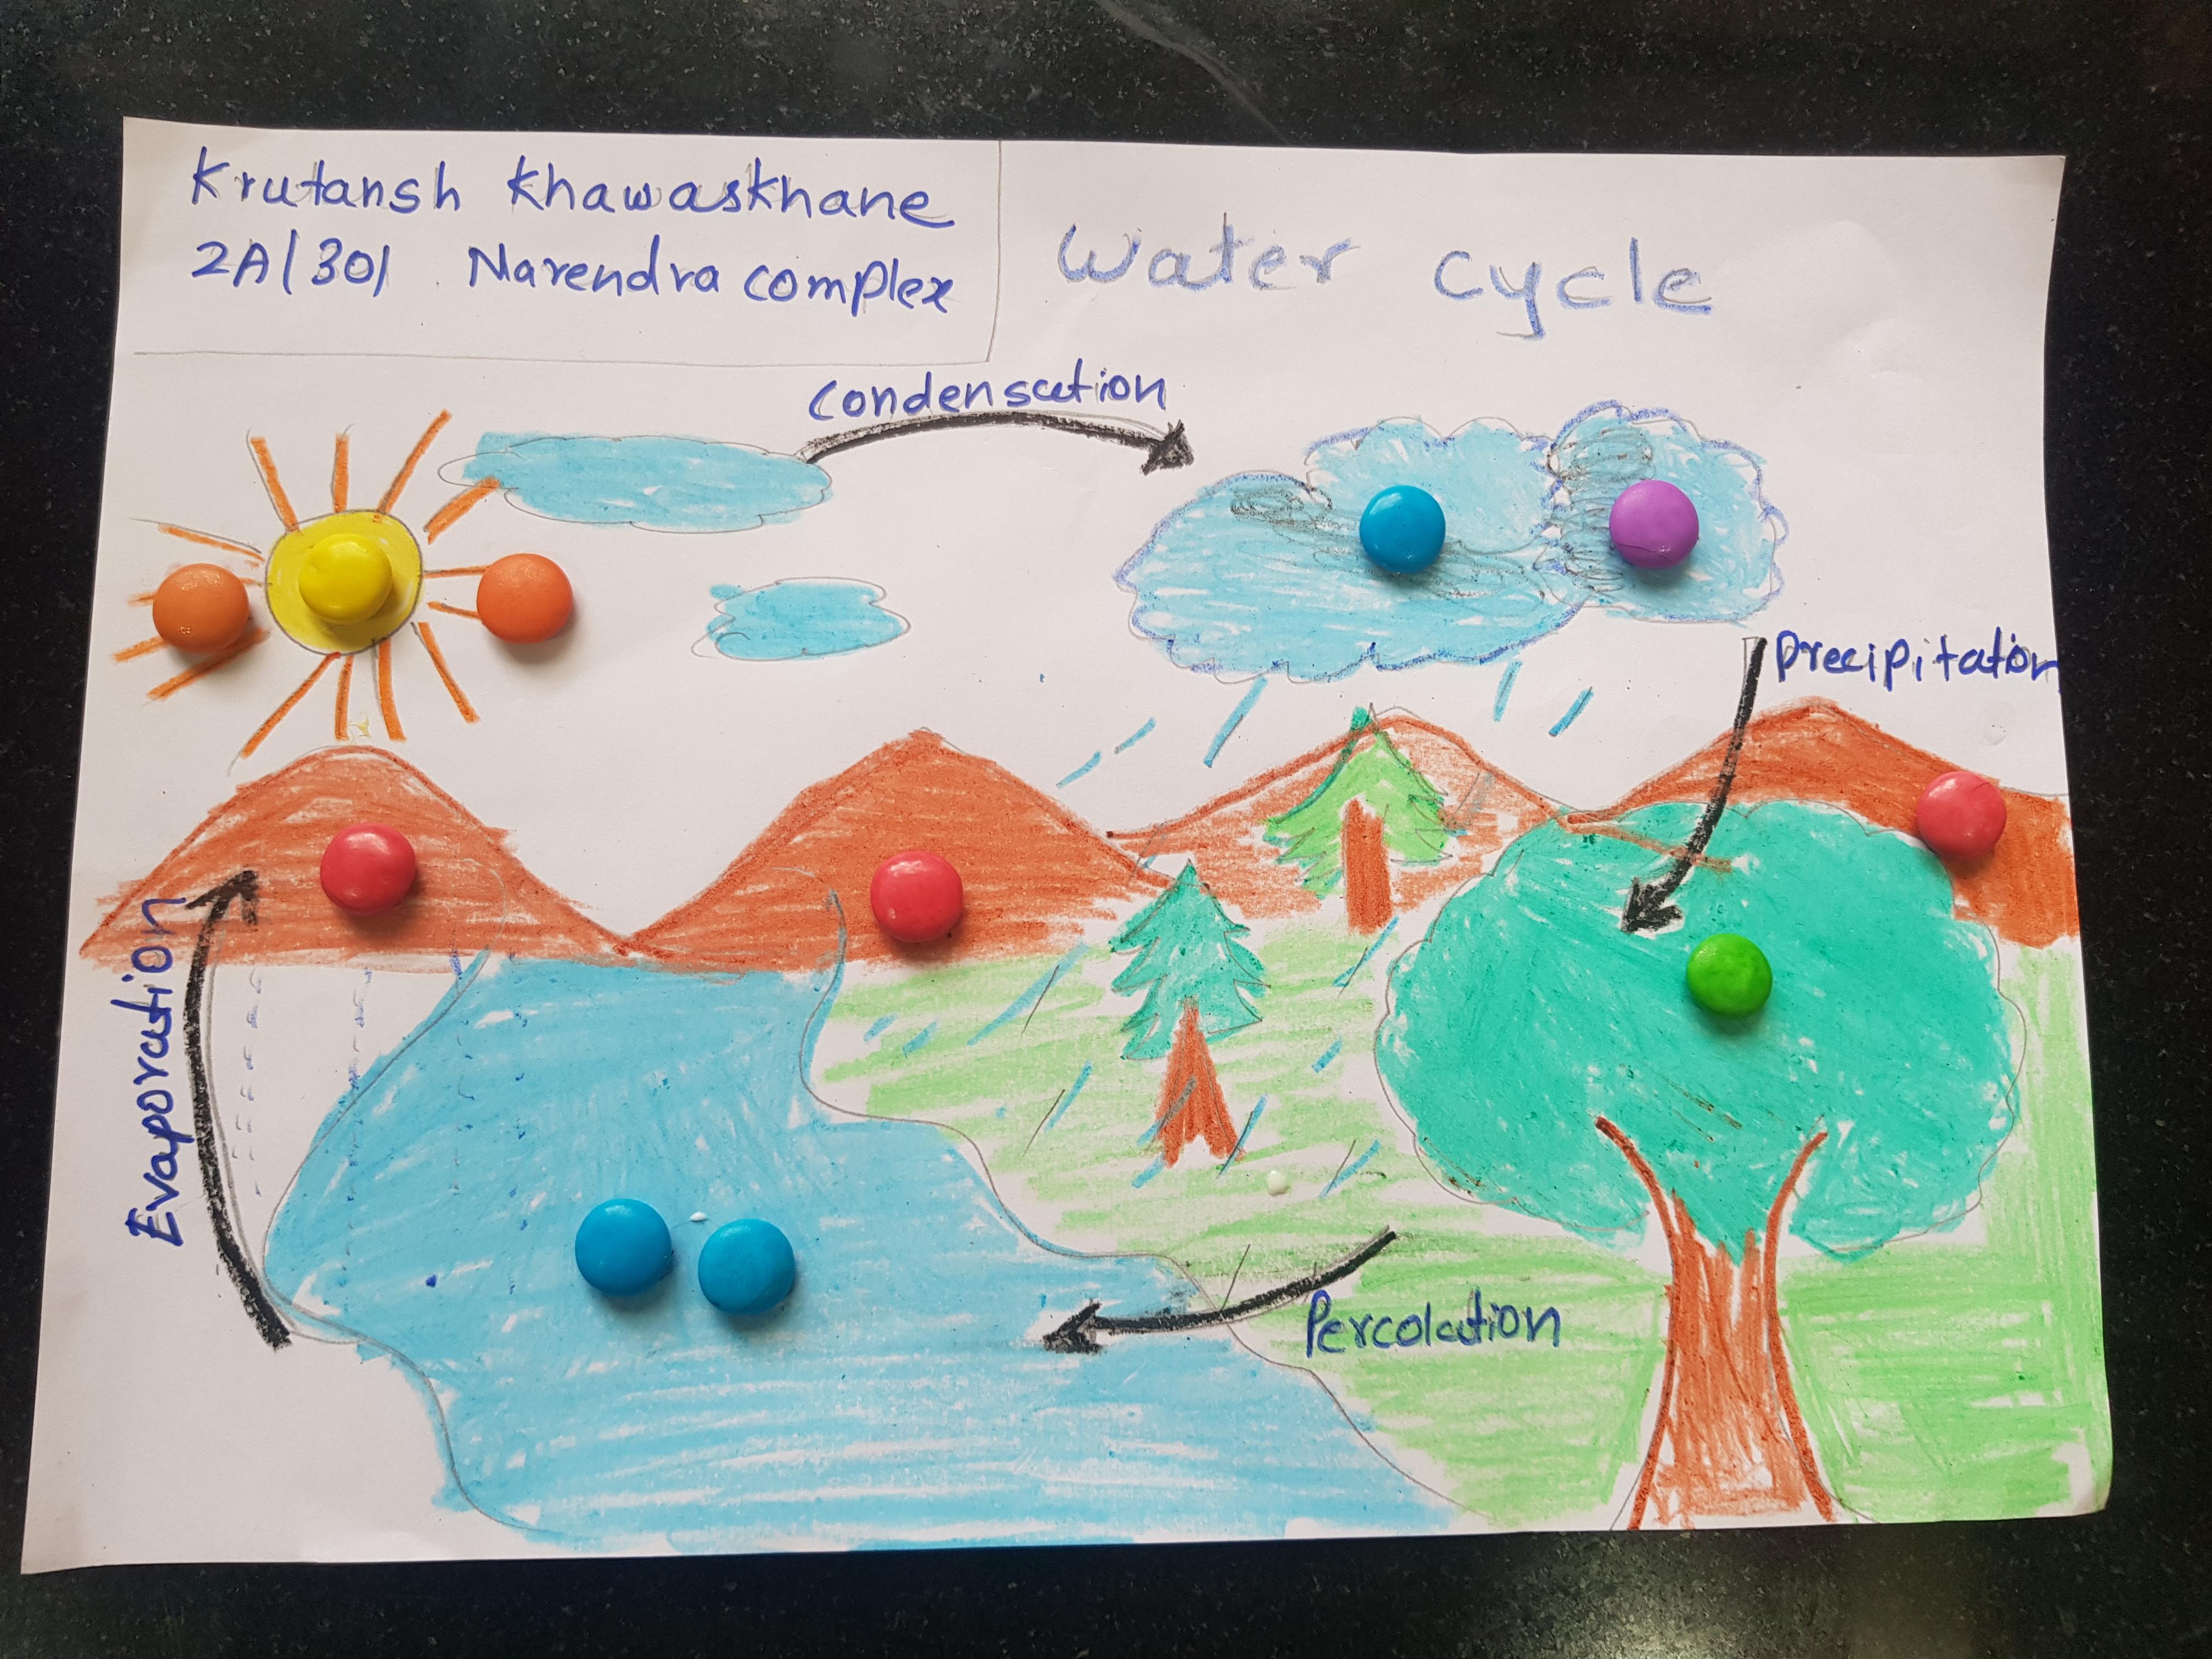 Krutansh Khawaskhane
2A/301 Narendra complex
Water cycle
Condensation
Precipitation
Evaporation
Percolation